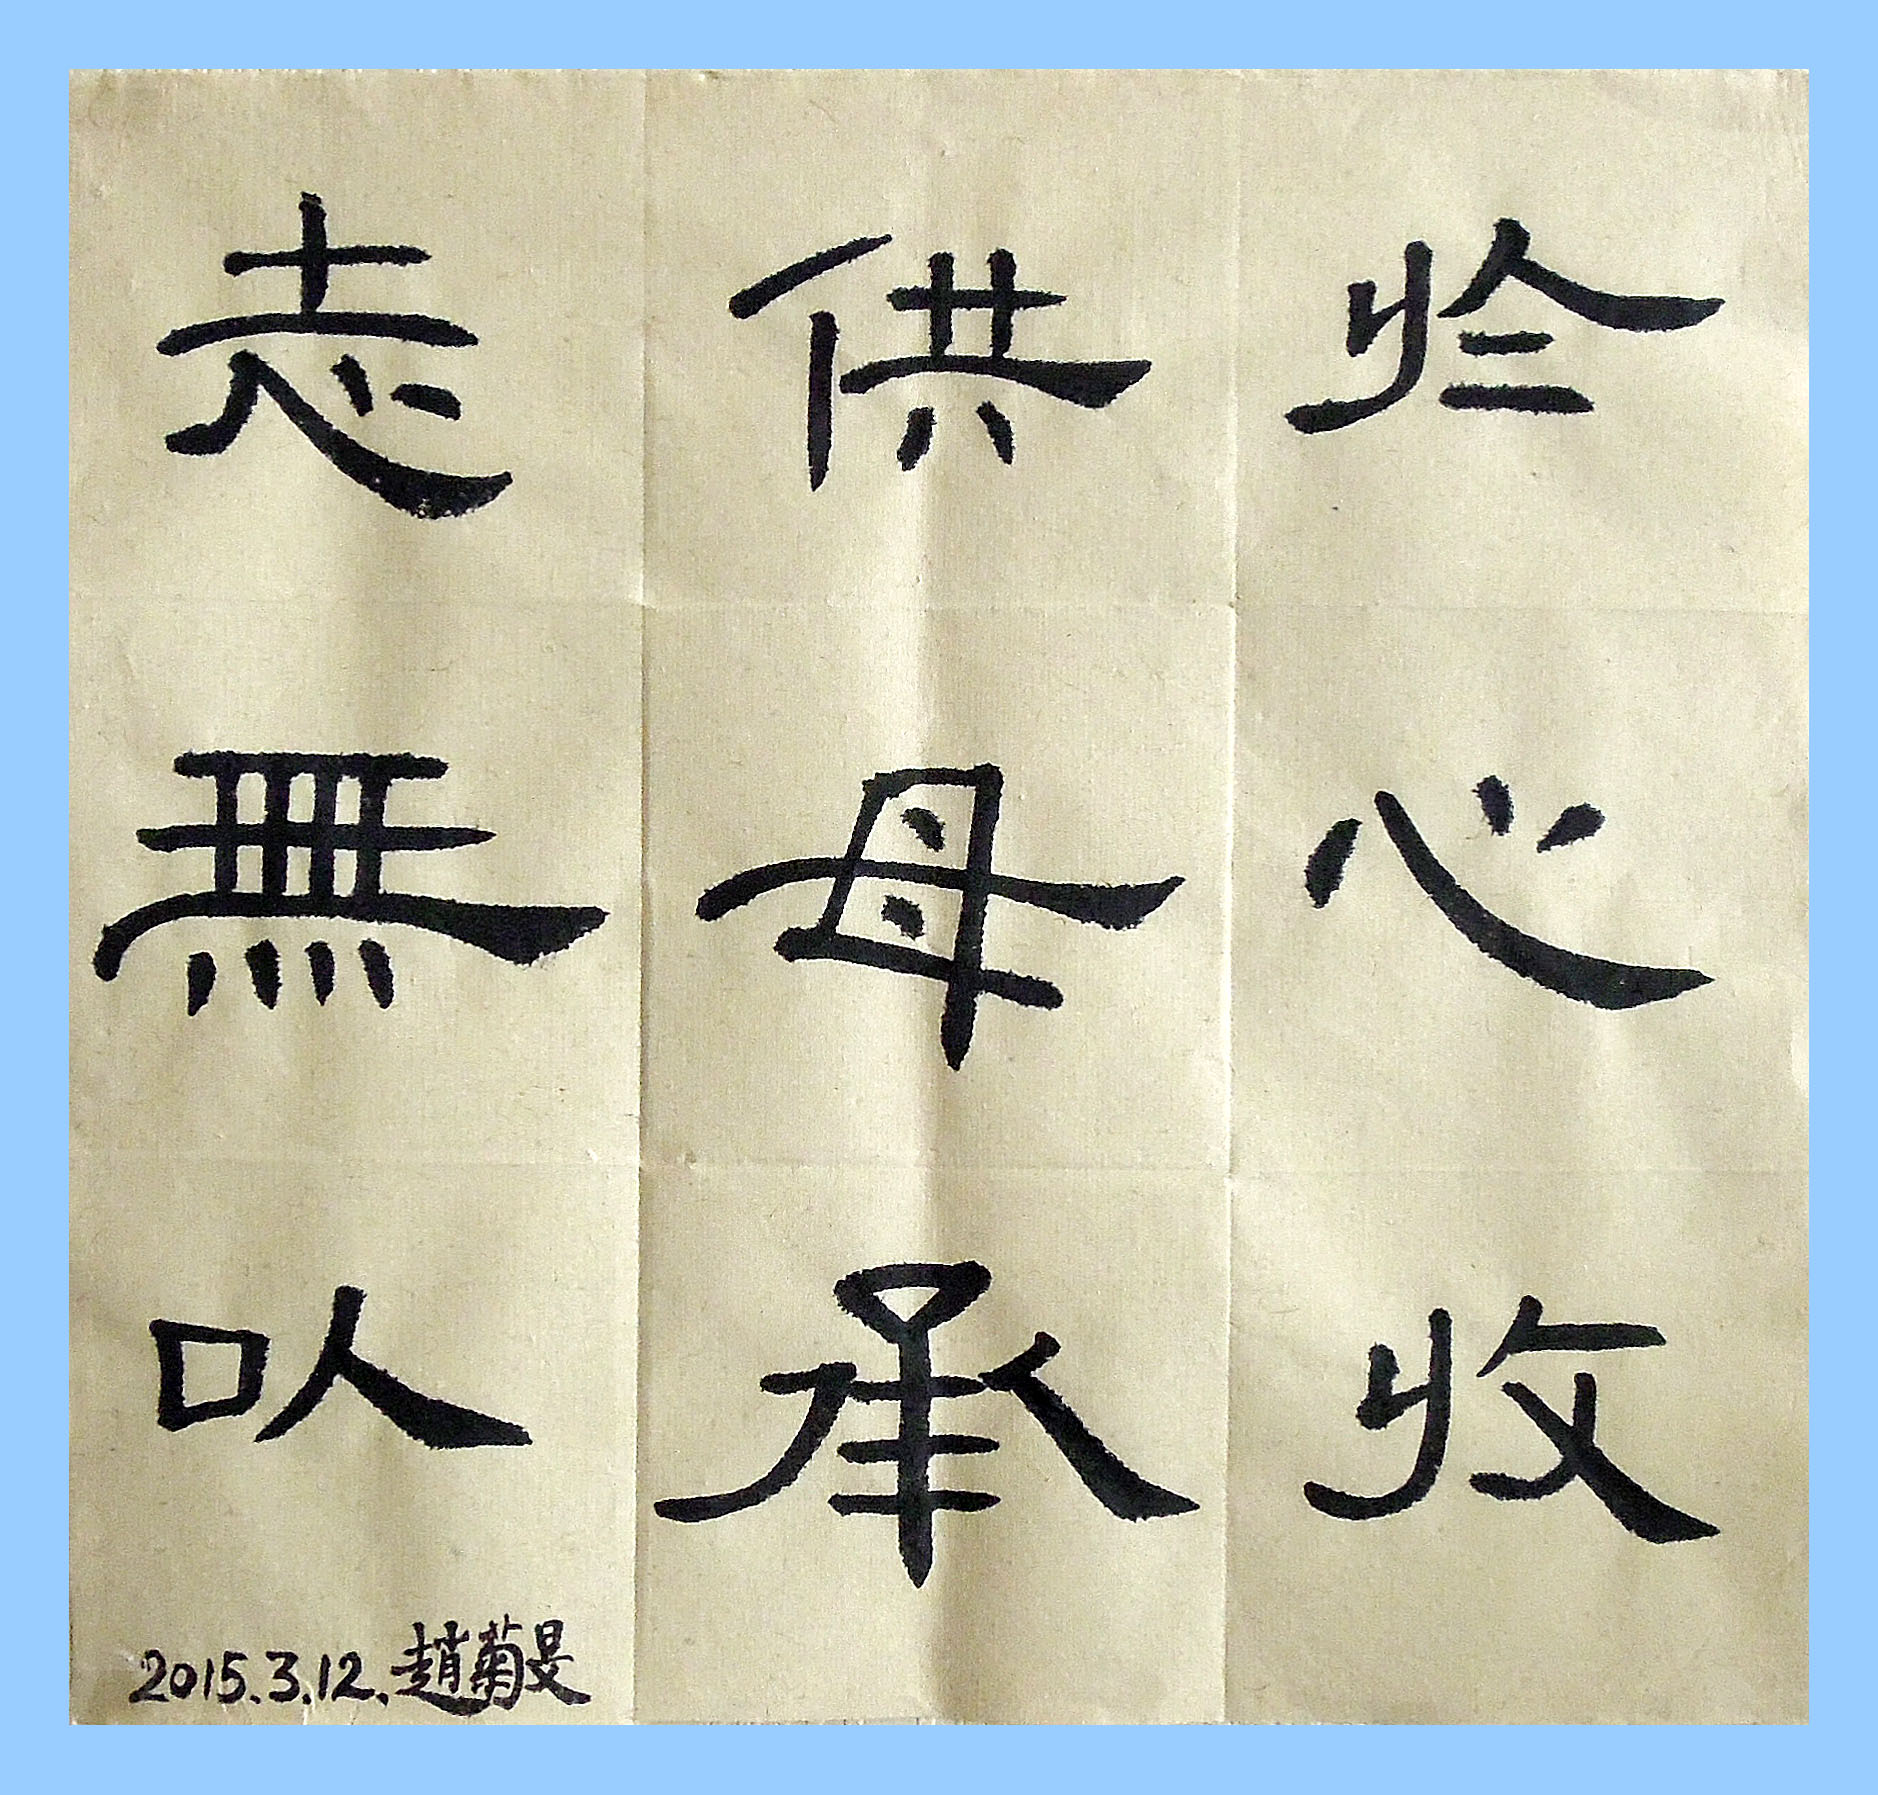 於心收
供母承
志無以
2015.3.12.趙菊旻